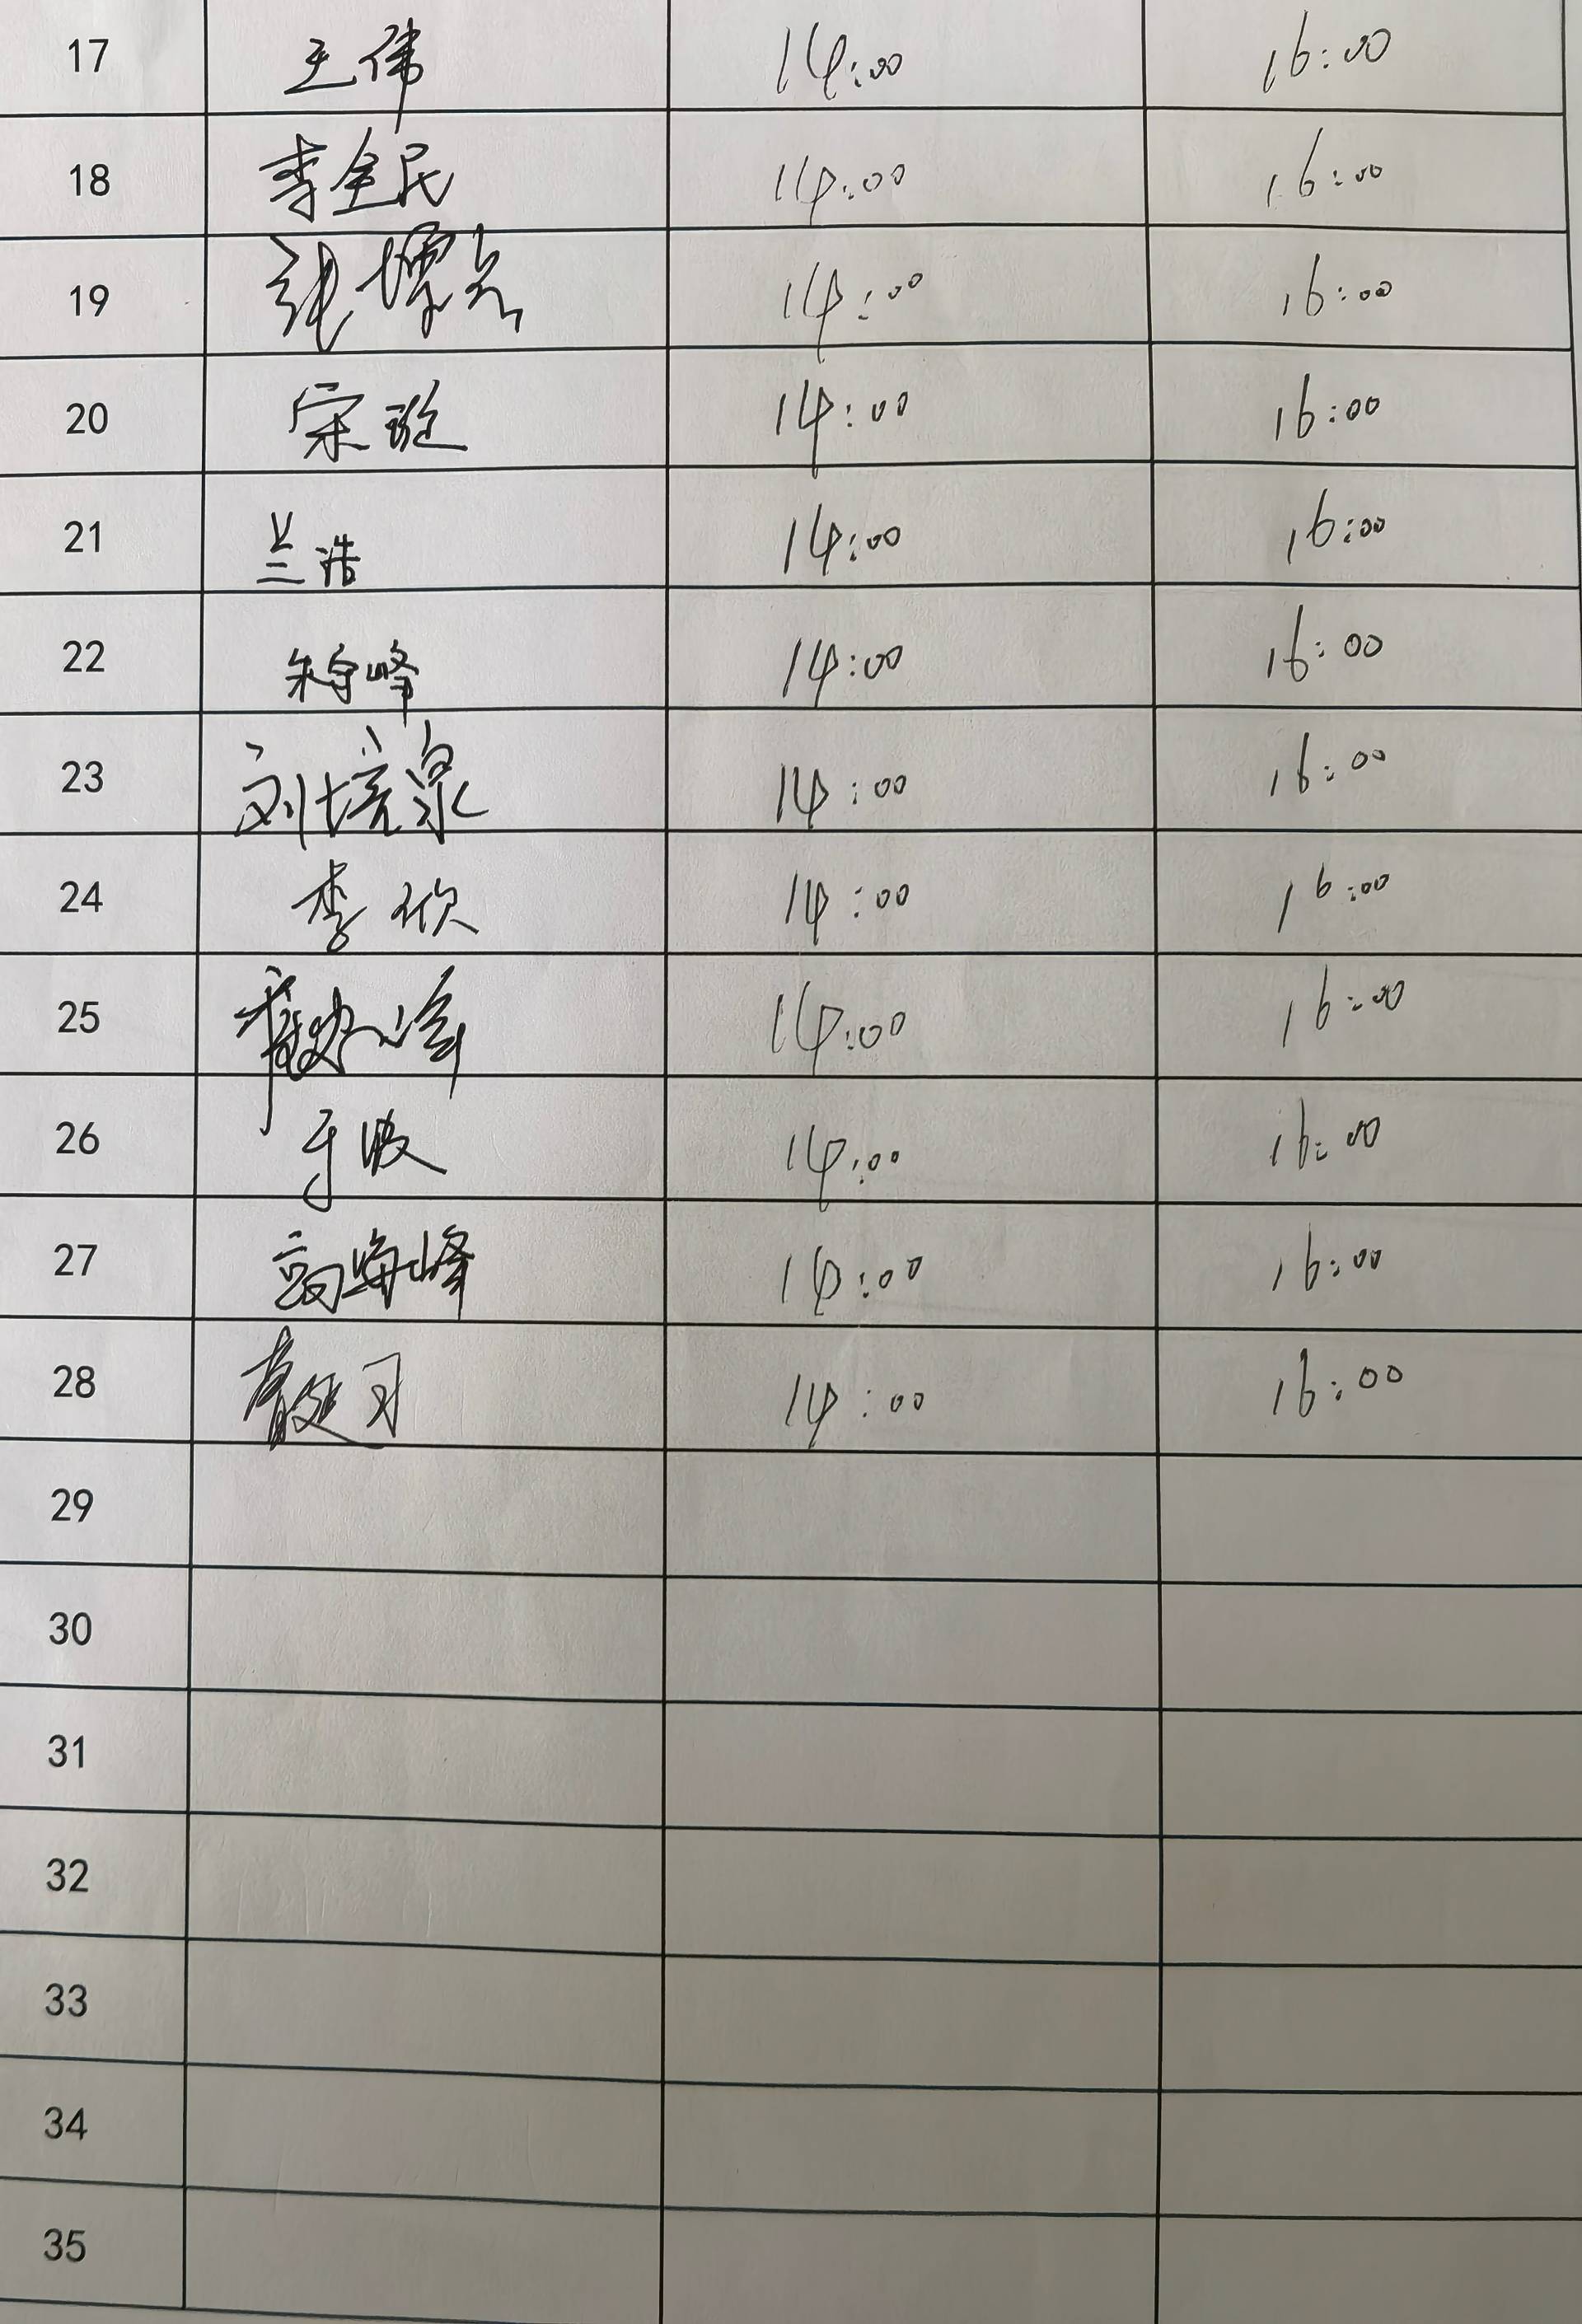 17 王伟 14:00 16:00
18 李全民 14:00 16:00
19 张 14:00 16:00
20 宋璇 14:00 16:00
21 兰浩 14:00 16:00
22 朱宇峰 14:00 16:00
23 刘培泉 14:00 16:00
24 李欣 14:00 16:00
25 14:00 16:00
26 于波 14:00 16:00
27 高海峰 14:00 16:00
28 14:00 16:00
29
30
31
32
33
34
35